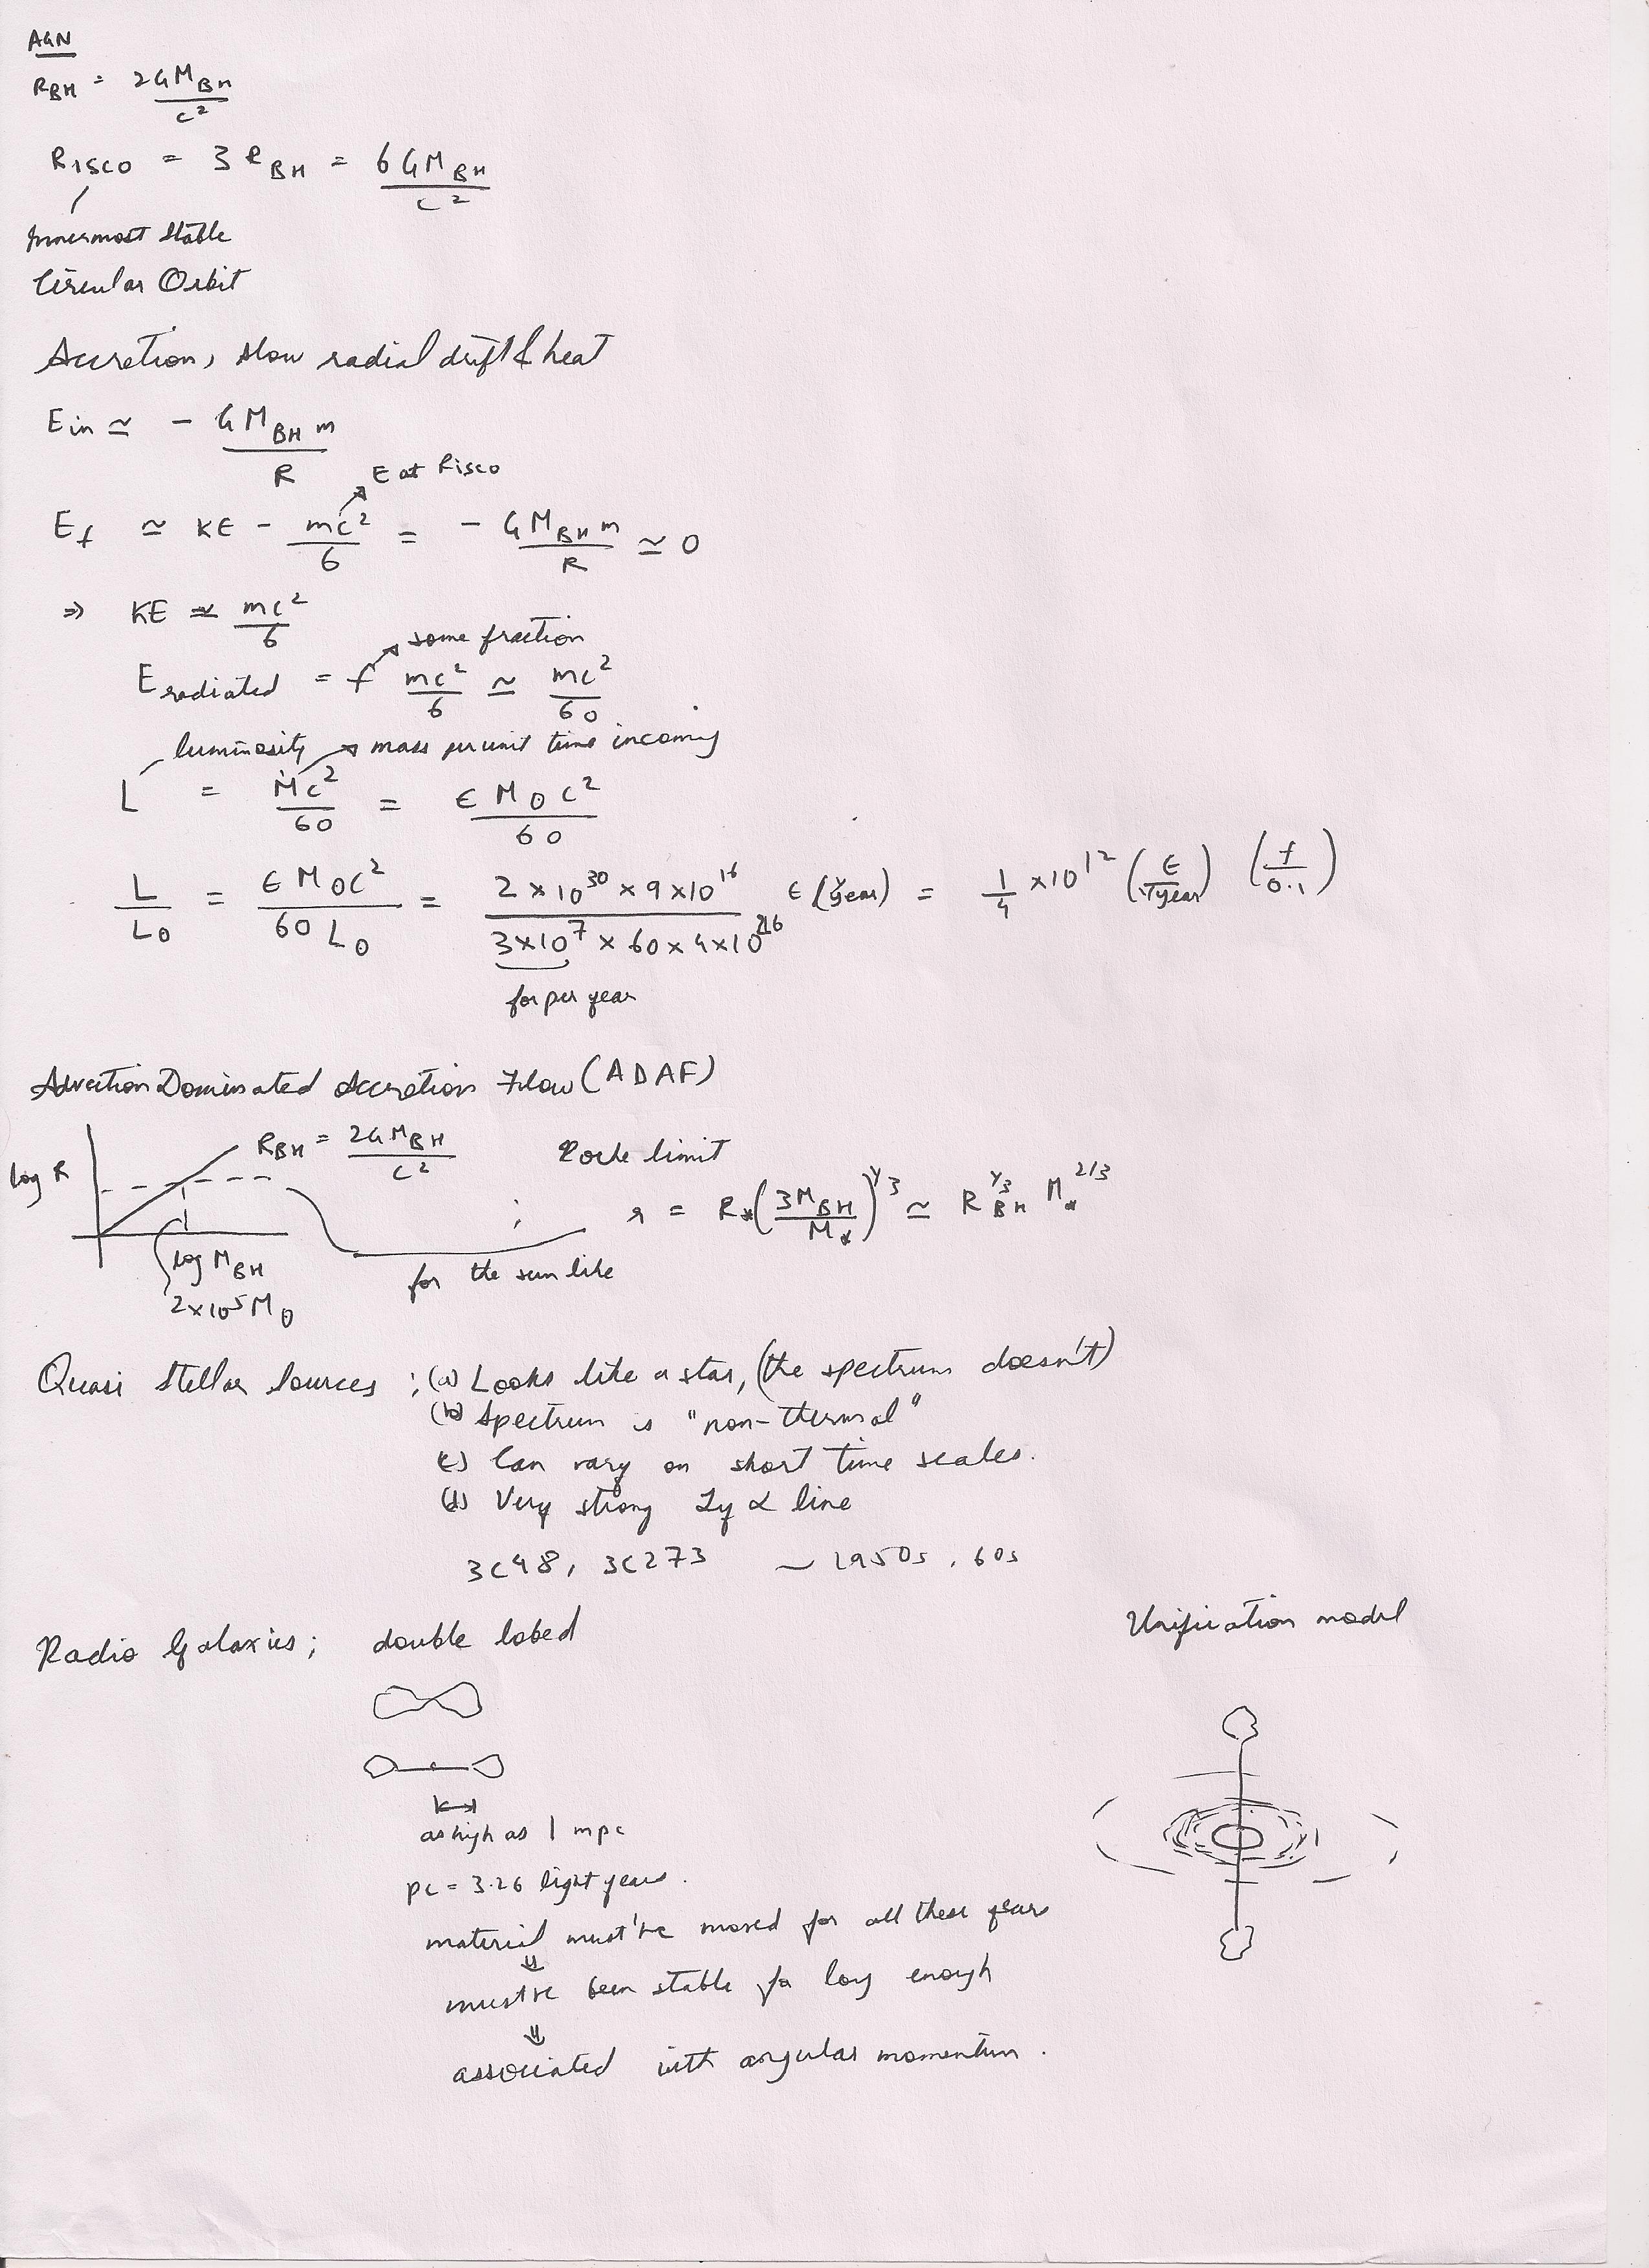 AGN
R_BH = 2GM_BH / c²
R_ISCO = 3 R_BH = 6GM_BH / c²
Innermost Stable
Circular Orbit
Accretion, slow radial drift & heat
E_in ≃ - GM_BH m / R
E at R_ISCO
E_f ≃ KE - mc²/6 = - GM_BH m / R ≃ 0
⇒ KE ≃ mc²/6
some fraction
E_radiated = f mc²/6 ≃ mc²/60
luminosity → mass per unit time incoming
L = Ṁc²/60 = ϵ M_⊙ c² / 60
L/L_⊙ = ϵ M_⊙ c² / 60 L_⊙ = 2×10³⁰ × 9×10¹⁶ / 3×10⁷ × 60 × 4×10²⁶ ϵ (/year) = 1/4 ×10¹² (ϵ / 1/year) (f/0.1)
for per year
Advection Dominated Accretion Flow (ADAF)
R_BH = 2GM_BH / c²
log R
Roche limit
r = R_* (3M_BH / M_*)^1/3 ≃ R_BH^1/3 M_*^2/3
log M_BH
for the sun like
2×10⁵ M_⊙
Quasi Stellar Sources ; (a) Looks like a star, (the spectrum doesn't)
(b) Spectrum is "non-thermal"
(c) Can vary on short time scales.
(d) Very strong Ly α line
3C48, 3C273 ~ 1950s, 60s
Unification model
Radio Galaxies; double lobed
as high as 1 mpc
pc = 3.26 light years.
material must've moved for all these years
⇓
must've been stable for long enough
⇓
associated with angular momentum.